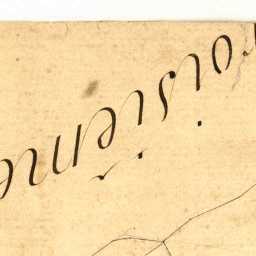 roisième